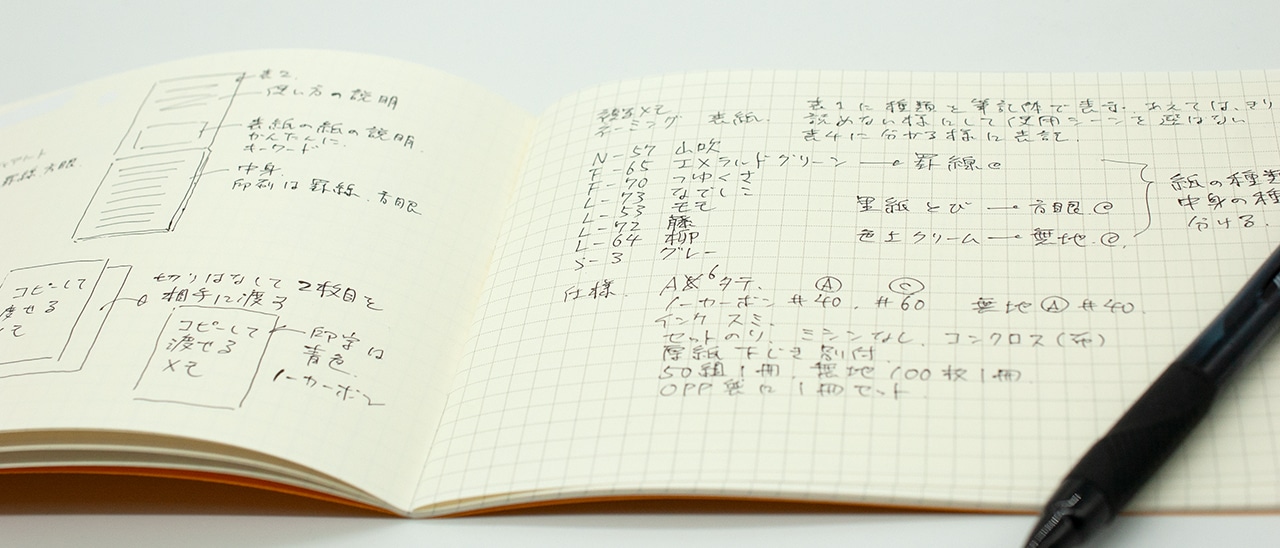 表2.
使い方の説明
表紙の紙の説明.
かんたんに.
キーワード
中身.
印刷は罫線.方眼
罫線.方眼
切りはなして 2枚目を
相手に渡す
コピーして
渡せる
コピーして
渡せる
メモ
印字は
青色.
ノーカーボン
複写メモ
ネーミング 表紙.
表1に種類を筆記体で表す.あえては、きり
読めない様にして使用シーンを選ばない
表4に分かる様に表記.
N-57 山吹
F-65 エメラルドグリーン → 罫線
F-70 つゆくさ
L-73 なでしこ
L-53 モモ
L-72 藤
L-64 柳
S-3 グレー
とび → 方眼
色上クリーム → 無地
紙の種類
中身の種
分ける.
仕様. A6タテ. Ⓐ Ⓒ
ノーカーボン #40. #60 無地 Ⓐ #40.
インク スミ.
セットのり. ミシンなし. コンクロス(布)
厚紙下じき 別付.
50組1冊. 無地100枚1冊.
OPP袋に1冊セット.